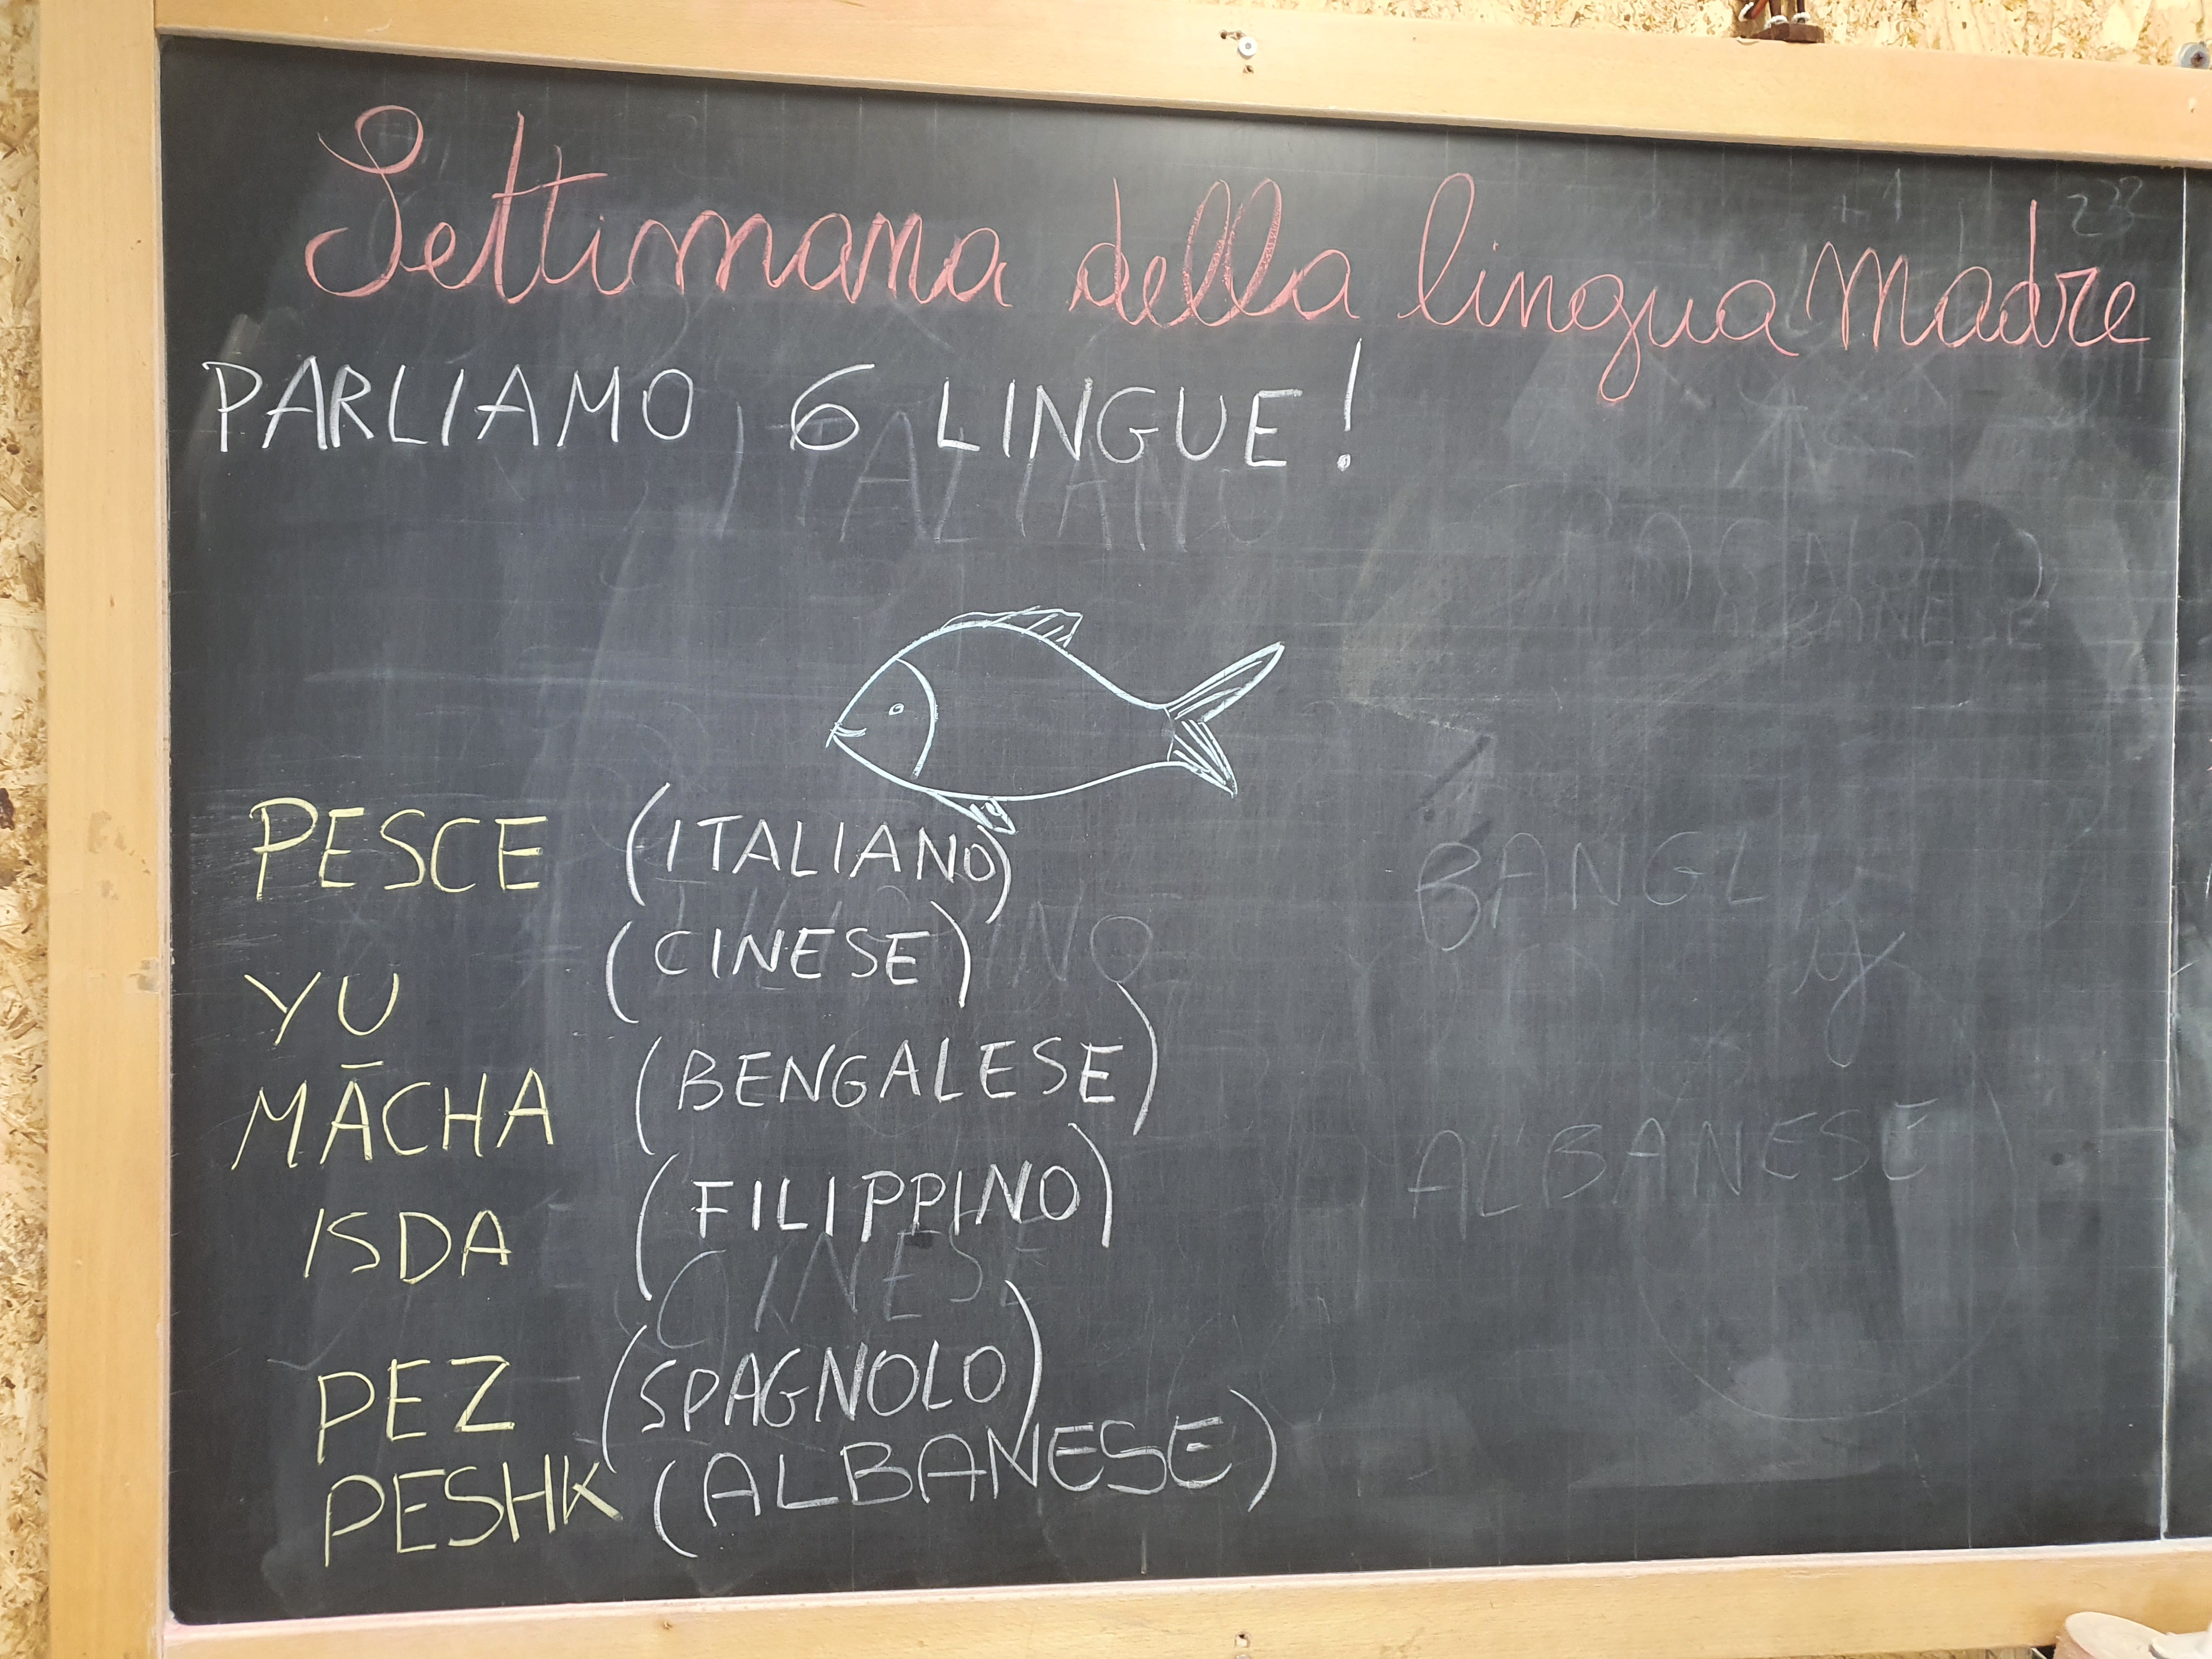 Settimana della lingua madre
PARLIAMO 6 LINGUE!
ITALIANO
PESCE (ITALIANO)
YU (CINESE)
MĀCHA (BENGALESE)
ISDA (FILIPPINO)
CINESE
PEZ (SPAGNOLO)
PESHK (ALBANESE)
ALBANESE